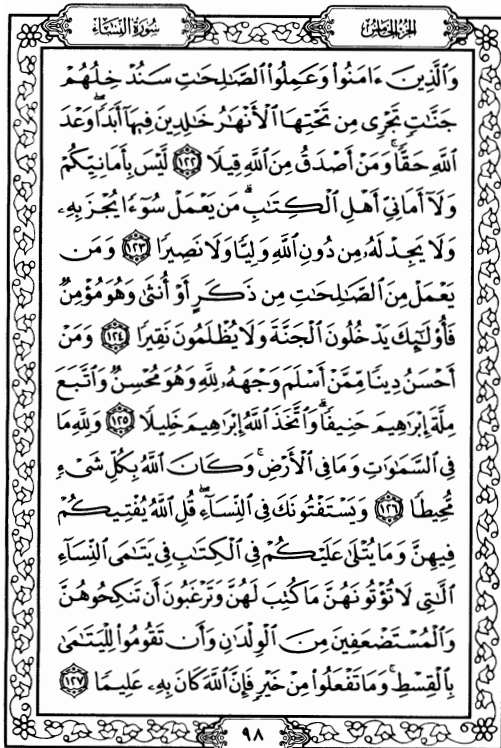 سُورَةُ النِّسَاءِ
الجُزْءُ الخَامِسُ
وَٱلَّذِينَ ءَامَنُوا۟ وَعَمِلُوا۟ ٱلصَّٰلِحَٰتِ سَنُدْخِلُهُمْ
جَنَّٰتٍ تَجْرِى مِن تَحْتِهَا ٱلْأَنْهَٰرُ خَٰلِدِينَ فِيهَآ أَبَدًا ۖ وَعْدَ
ٱللَّهِ حَقًّا ۚ وَمَنْ أَصْدَقُ مِنَ ٱللَّهِ قِيلًا ١٢٢ لَّيْسَ بِأَمَانِيِّكُمْ
وَلَآ أَمَانِىِّ أَهْلِ ٱلْكِتَٰبِ ۗ مَن يَعْمَلْ سُوٓءًا يُجْزَ بِهِۦ
وَلَا يَجِدْ لَهُۥ مِن دُونِ ٱللَّهِ وَلِيًّا وَلَا نَصِيرًا ١٢٣ وَمَن
يَعْمَلْ مِنَ ٱلصَّٰلِحَٰتِ مِن ذَكَرٍ أَوْ أُنثَىٰ وَهُوَ مُؤْمِنٌ
فَأُو۟لَٰٓئِكَ يَدْخُلُونَ ٱلْجَنَّةَ وَلَا يُظْلَمُونَ نَقِيرًا ١٢٤ وَمَنْ
أَحْسَنُ دِينًا مِّمَّنْ أَسْلَمَ وَجْهَهُۥ لِلَّهِ وَهُوَ مُحْسِنٌ وَٱتَّبَعَ
مِلَّةَ إِبْرَٰهِيمَ حَنِيفًا ۗ وَٱتَّخَذَ ٱللَّهُ إِبْرَٰهِيمَ خَلِيلًا ١٢٥ وَلِلَّهِ مَا
فِى ٱلسَّمَٰوَٰتِ وَمَا فِى ٱلْأَرْضِ ۚ وَكَانَ ٱللَّهُ بِكُلِّ شَىْءٍ
مُّحِيطًا ١٢٦ وَيَسْتَفْتُونَكَ فِى ٱلنِّسَآءِ ۖ قُلِ ٱللَّهُ يُفْتِيكُمْ
فِيهِنَّ وَمَا يُتْلَىٰ عَلَيْكُمْ فِى ٱلْكِتَٰبِ فِى يَتَٰمَى ٱلنِّسَآءِ
ٱلَّٰتِى لَا تُؤْتُونَهُنَّ مَا كُتِبَ لَهُنَّ وَتَرْغَبُونَ أَن تَنكِحُوهُنَّ
وَٱلْمُسْتَضْعَفِينَ مِنَ ٱلْوِلْدَٰنِ وَأَن تَقُومُوا۟ لِلْيَتَٰمَىٰ
بِٱلْقِسْطِ ۚ وَمَا تَفْعَلُوا۟ مِنْ خَيْرٍ فَإِنَّ ٱللَّهَ كَانَ بِهِۦ عَلِيمًا ١٢٧
٩٨